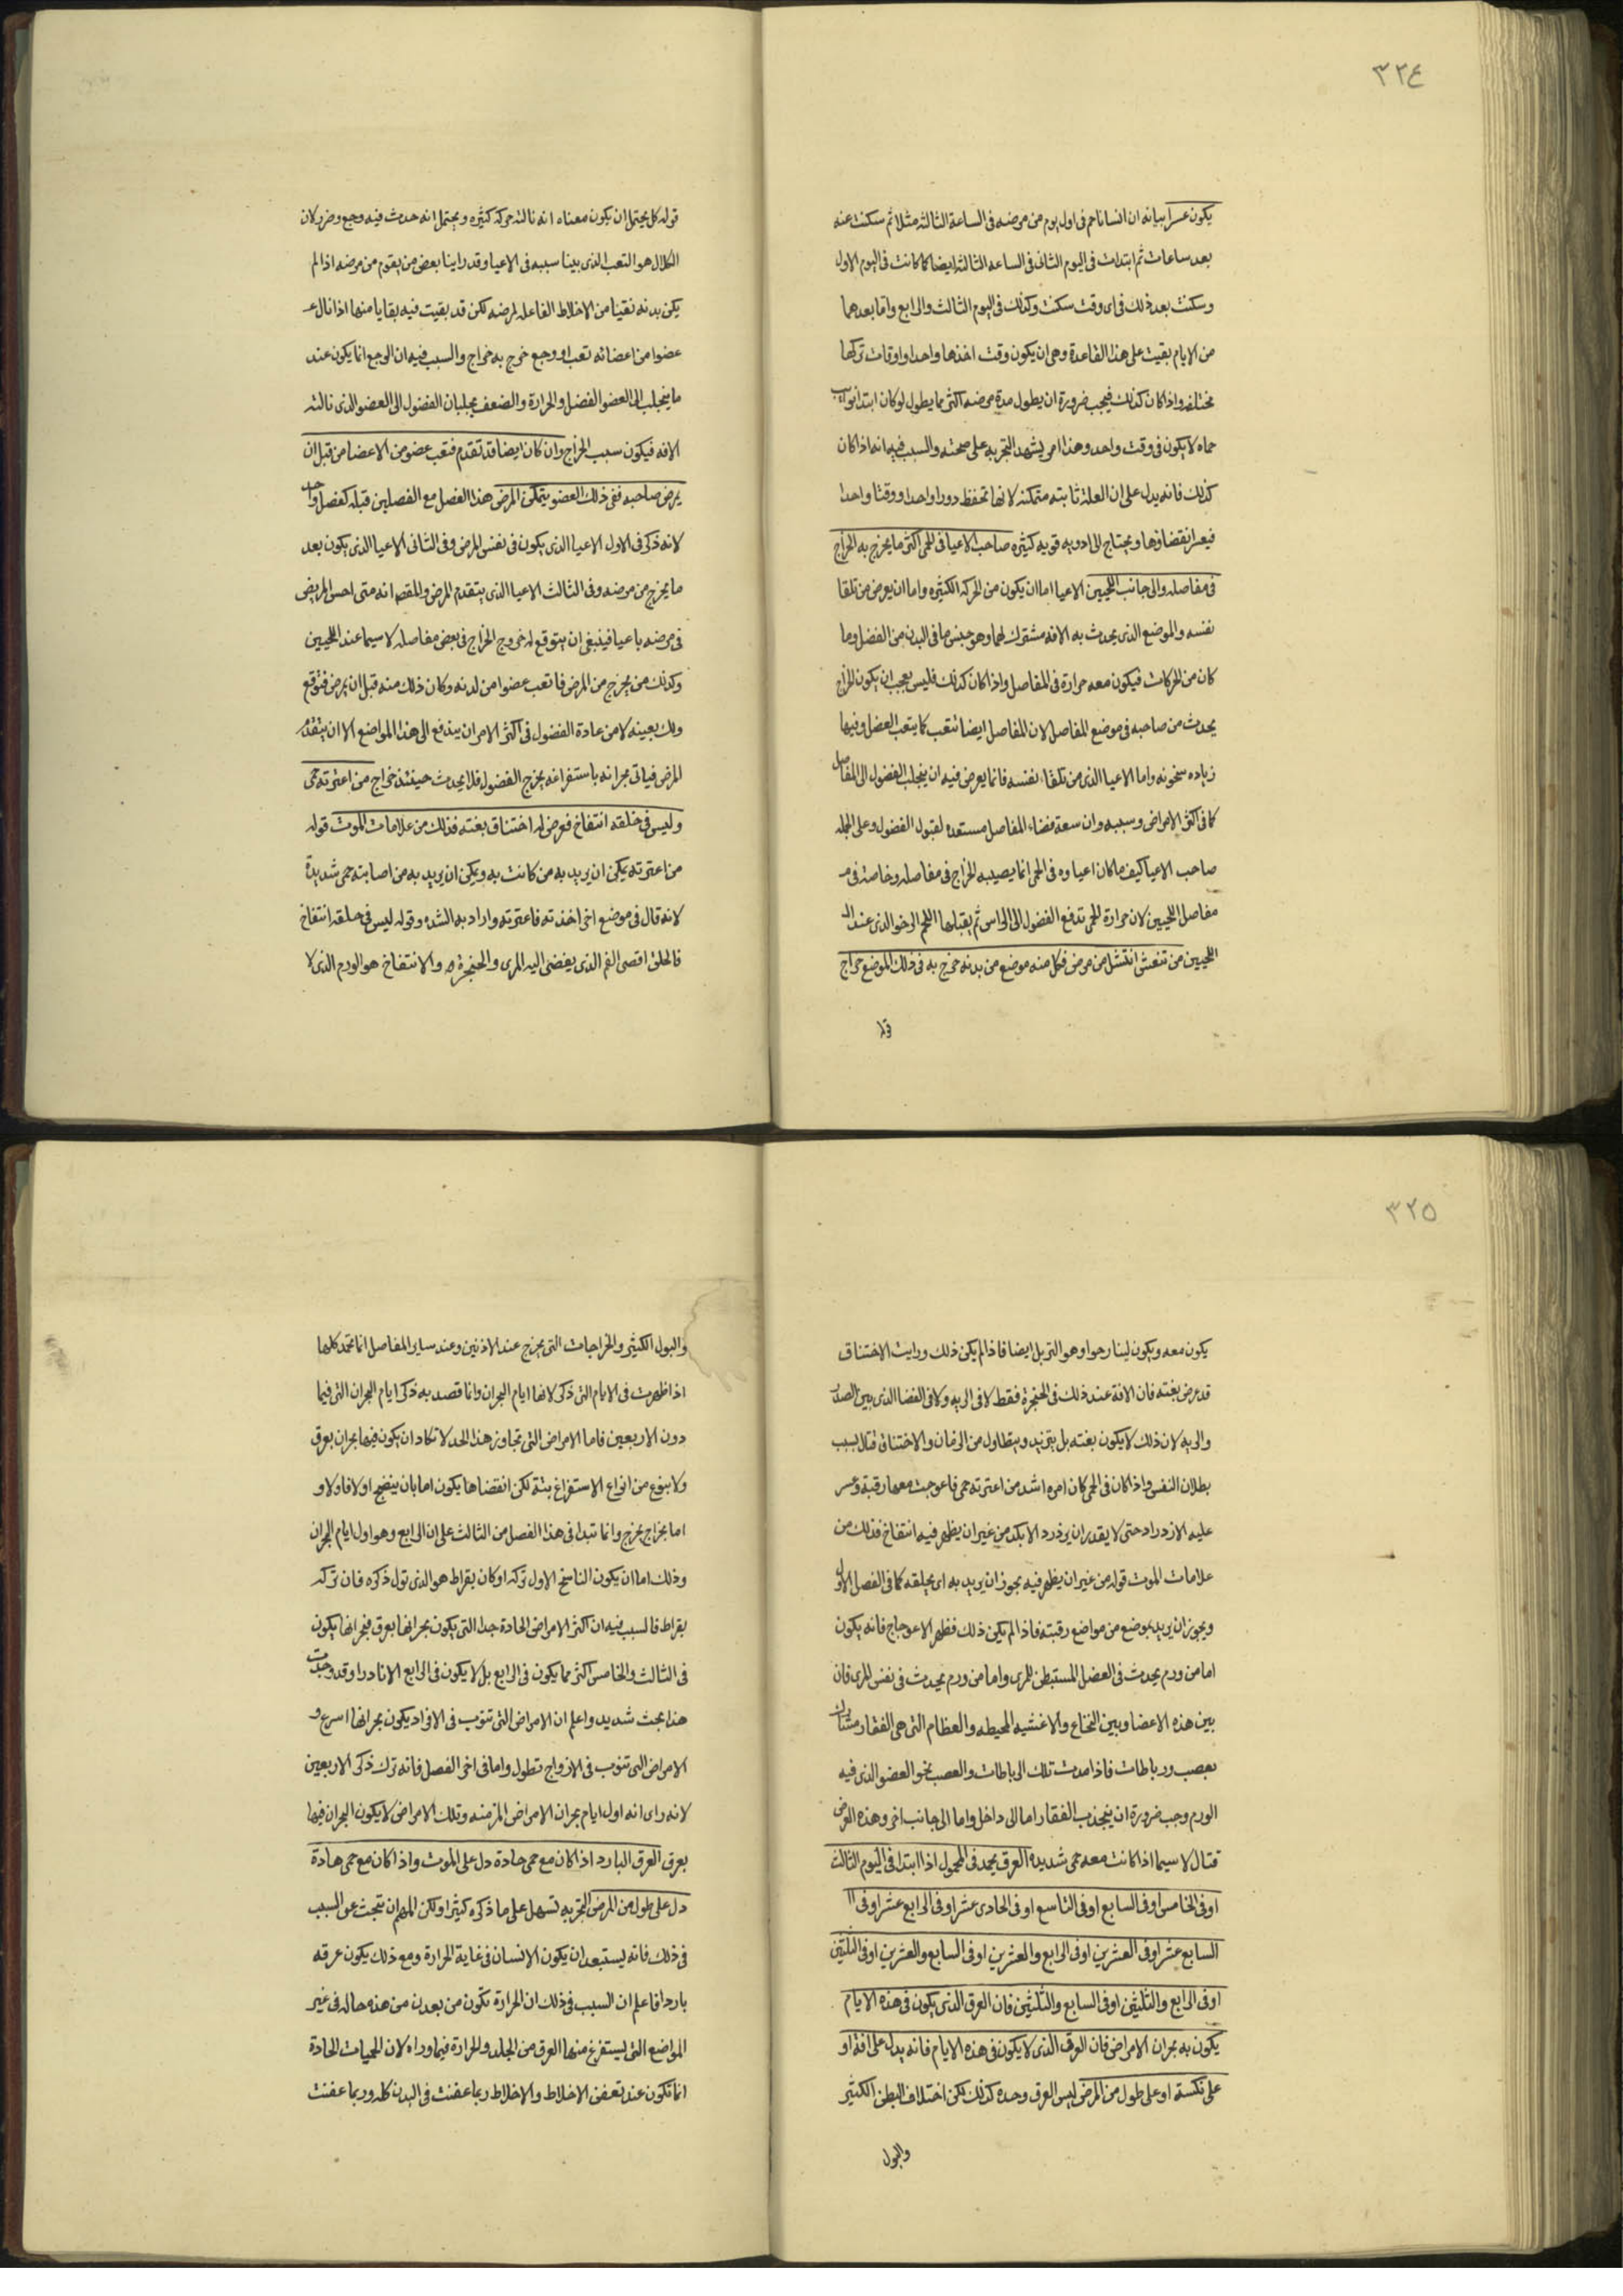 ٣٢٤
يكون عسرا بيانه ان انسانا حم فى اول يوم من مرضه فى الساعة الثالثه مثلا ثم سكنت عنه
بعد ساعات ثم ابتدات فى اليوم الثانى فى الساعه الثالثه ايضا كما كانت فى اليوم الاول
وسكنت بعد ذلك فى اى وقت سكنت وكذلك فى اليوم الثالث والرابع واما بعدهما
من الايام بقيت على هذا القاعدة وهى ان يكون وقت اخذها واحدا واوقات تركها
مختلفه واذا كان كذلك فيجب ضرورة ان يطول مدة مرضه اكثر مما يطول لو كان ابتدا نوايب
حماه لا يكون فى وقت واحد وهذا امر يشهد التجربه على صحته والسبب فيه انه اذا كان
كذلك فانه يدل على ان العلة ثابته متمكنه لانها تحفظ دورا واحدا ووقتا واحدا
فيعسر انقضاؤها ويحتاج الى ادويه قويه كثيره صاحب الاعيا فى الحمى اكثر ما يخرج به الخراج
فى مفاصله والى جانب اللحيين الاعيا اما ان يكون من الحركه الكثيره واما ان يعرض من تلقا
نفسه والموضع الذى يحدث به الافه مشترك لهما وهو جنس ما فى البدن من الفضل وما
كان من الحركات فيكون معه حرارة فى المفاصل واذا كان كذلك فليس بعجب ان يكون الخراج
يحدث من صاحبه فى موضع المفاصل لان المفاصل ايضا تتعب كما يتعب العضل وفيها
زياده سخونه واما الاعيا الذى من تلقاء نفسه فانما يعرض فيه ان ينجلب الفضول الى المفاصل
كما فى اكثر الامراض وسببه وان سعة فضاء المفاصل مستعده لقبول الفضول وعلى الجمله
صاحب الاعيا كيف ما كان اعياوه فى الحمى انما يصيبه الخراج فى مفاصله وخاصة فى
مفاصل اللحيين لان حرارة الحمى تدفع الفضول الى الراس ثم يقبلها اللحم الرخو الذى عند
اللحيين من تنعش انتشل من مرض فكل منه موضع من بدنه خرج به فى ذلك الموضع خراج
قوله كل يحتمل ان يكون معناه انه نالته حركه كثيره ويحتمل انه حدث فيه وجع وضر ولان
الكلال هو التعب الذى بينا سببه فى الاعيا وقد راينا بعض من يقوم من مرضه اذا لم
يكن بدنه نقيا من الاخلاط الفاعله لمرضه لكن قد بقيت فيه بقايا منها اذا نال
عضوا من اعضائه تعب او وجع خرج به خراج والسبب فيه ان الوجع انما يكون عند
ما ينجلب الى العضو الفضل والحرارة والضعف يجلبان الفضول الى العضو الذى نالته
الافه فيكون سبب الخراج وان كان ايضا قد تقدم فتعب عضو من الاعضا من قبل ان
يمرض صاحبه ففى ذلك العضو يتمكن المرض هذا الفصل مع الفصلين قبله كفصل واحد
لانه ذكر فى الاول الاعيا الذى يكون فى نفس المرض وفى الثانى الاعيا الذى يكون بعد
ما يخرج من مرضه وفى الثالث الاعيا الذى يتقدم المرض والمقصد انه متى احس المريض
فى مرضه باعيا فينبغى ان يتوقع له خروج الخراج فى بعض مفاصله لا سيما عند اللحيين
وكذلك من يخرج من المرض فاتعب عضوا من بدنه وكان ذلك منه قبل ان يمرض فتوقع
ذلك بعينه لا من عادة الفضول فى اكثر الامر ان يندفع الى هذا المواضع الا ان يتقدم
المرض فياتى بحرانه باستفراغه يخرج الفضول فلا يحدث حينئذ خراج من اعترته حمى
وليس فى حلقه انتفاخ فعرض له اختناق بغته فذلك من علامات الموت قوله
من اعترته يمكن ان يريد به من كانت به ويمكن ان يريد به من اصابته حمى شديدة
لانه قال فى موضع اخر اخذته فاعترته واراد به الشده وقوله ليس فى حلقه انتفاخ
فالحلق اقصى الفم الذى يفضى اليه المرى والحنجرة والانتفاخ هو الورم الذى لا
٣٢٥
يكون معه ويكون لينا رخوا وهو التربل ايضا فاذا لم يكن ذلك ورايت الاختناق
قد عرض بغته فان الافة عند ذلك فى الحنجرة فقط لا فى الريه ولا فى الفضا الذى بين الصدر
والريه لان ذلك لا يكون بغته بل يتزيد ويتطاول من الزمان والاختناق قتال بسبب
بطلان النفس واذا كان فى الحمى كان امره اشد من اعترته حمى فاعوجت معها رقبته وعسر
عليه الازدراد حتى لا يقدر ان يزدرد الا بكد من غير ان يظهر فيه انتفاخ فذلك من
علامات الموت قوله من غير ان يظهر فيه يجوز ان يريد به اى بحلقه كما فى الفصل الاول
ويجوز ان يريد بموضع من مواضع رقبته فاذا لم يكن ذلك فظهر الاعوجاج فانه يكون
اما من ورم يحدث فى العضل المستبطن للمرى واما من ورم يحدث فى نفس المرى فان
بين هذه الاعضا وبين النخاع والاغشيه المحيطه والعظام التى هى الفقار مشاركة
بعصب ورباطات فاذا مدت تلك الرباطات والعصب نحو العضو الذى فيه
الورم وجب ضرورة ان ينجذب الفقار اما الى داخل واما الى جانب اخر وهذه العرض
قتال لا سيما اذا كانت معه حمى شديدة العرق يحمد فى المحموم اذا ابتدا فى اليوم الثالث
او فى الخامس او فى السابع او فى التاسع او فى الحادى عشر او فى الرابع عشر او فى
السابع عشر او فى العشرين او فى الرابع والعشرين او فى السابع والعشرين او فى الثلثين
او فى الرابع والثلثين او فى السابع والثلثين فان العرق الذى يكون فى هذه الايام
يكون به بحران الامراض فان العرق الذى لا يكون فى هذه الايام فانه يدل على افة او
على نكسته او على طول من المرض ليس العرق وحده كذلك لكن اختلاف البطن الكثير
والبول
والبول الكثير والخراجات التى يخرج عند الاذنين وعند ساير المفاصل انما تحمد كلها
اذا ظهرت فى الايام التى ذكر لانها ايام البحران وانما قصد به ذكر ايام البحران التى فيما
دون الاربعين فاما الامراض التى تجاوز هذا الحد لا تكاد ان يكون فيها بحران بعرق
ولا بنوع من انواع الاستفراغ بتة لكن انقضاها يكون اما بان ينضج اولا فاولا و
اما بخراج يخرج وانما تبدا فى هذا الفصل من الثالث على ان الرابع وهو اول ايام البحران
وذلك اما ان يكون الناسخ الاول تركه او كان بقراط هو الذى تول ذكره فان تركه
بقراط فالسبب فيه ان اكثر الامراض الحادة جدا التى يكون بحرانها بعرق فبحرانها يكون
فى الثالث والخامس اكثر مما يكون فى الرابع بل لا يكون فى الرابع الا نادرا وقد وجدت
هذا بحث شديد واعلم ان الامراض التى تنوب فى الافراد يكون بحرانها اسرع و
الامراض التى تنوب فى الازواج تطول واما فى اخر الفصل فانه ترك ذكر الاربعين
لانه راى انه اول ايام بحران الامراض المزمنه وتلك الامراض لا يكون البحران فيها
بعرق العرق البارد اذا كان مع حمى حادة دل على الموت واذا كان مع حمى هادة
دل على طول من المرض التجربه تسهل على ما ذكره كثيرا ولكن المهم ان تبحث عن السبب
فى ذلك فانه يستبعد ان يكون الانسان فى غاية الحرارة ومع ذلك يكون عرقه
باردا فاعلم ان السبب فى ذلك ان الحرارة تكون من بعدن من هذه حاله فى غير
المواضع التى يستفرغ منها العرق من الجلد والحرارة فيما وراه لان الحميات الحادة
انما تكون عند تعفن الاخلاط والاخلاط ربما عفنت فى البدن كله وربما عفنت